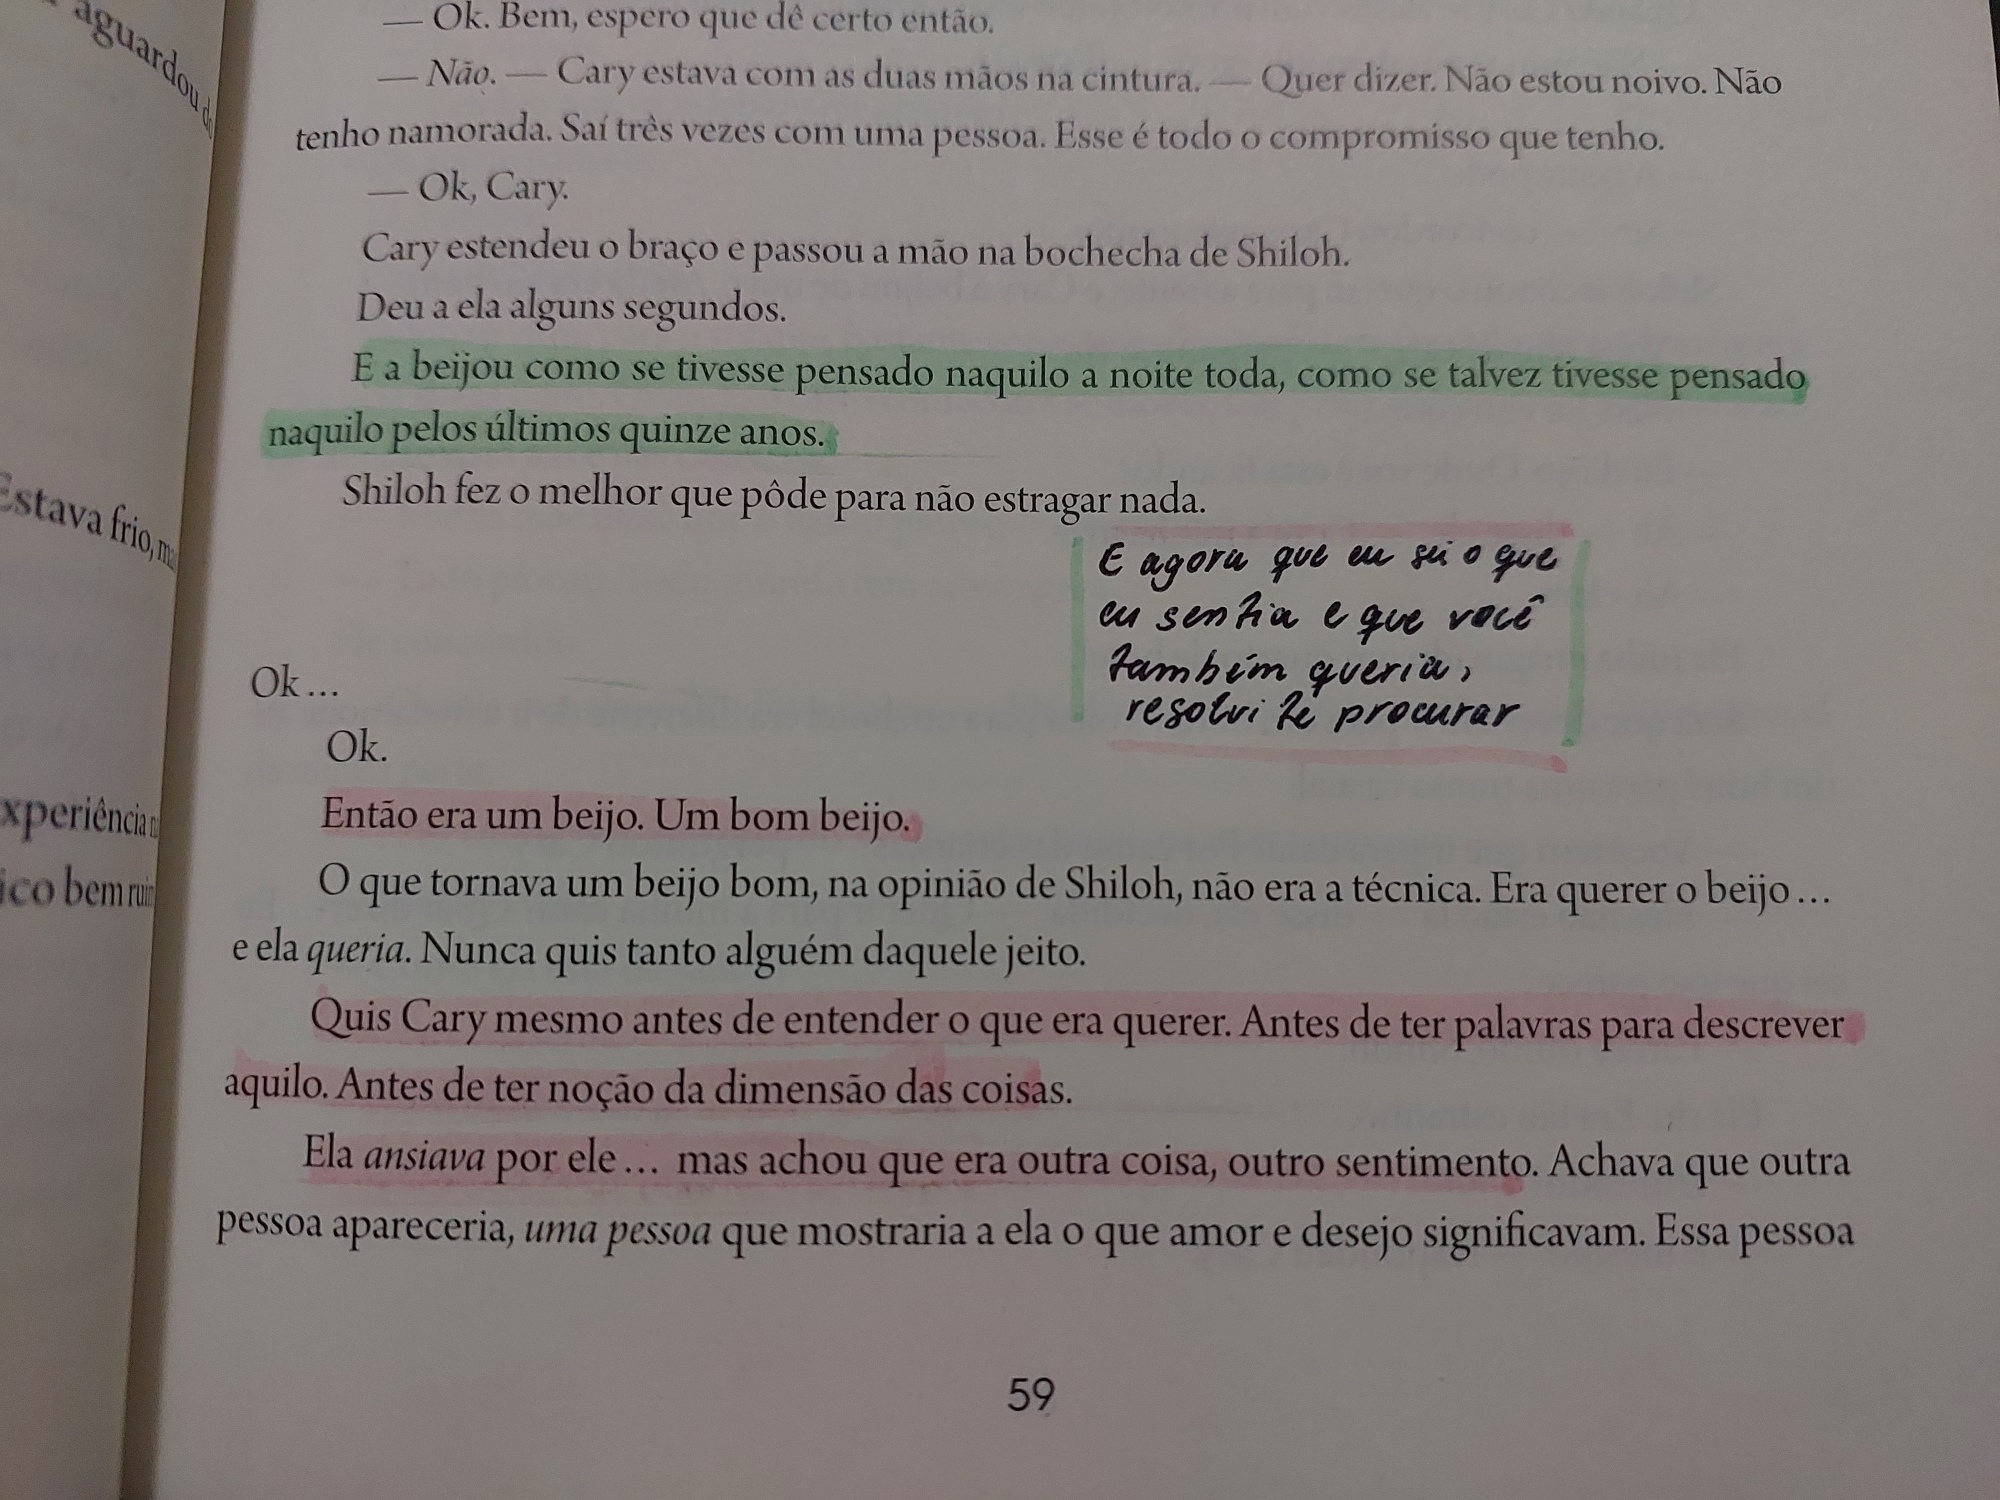 aguardou
Estava frio,
xperiência
ico bem
— Ok. Bem, espero que dê certo então.
— Não. — Cary estava com as duas mãos na cintura. — Quer dizer. Não estou noivo. Não
tenho namorada. Saí três vezes com uma pessoa. Esse é todo o compromisso que tenho.
— Ok, Cary.
Cary estendeu o braço e passou a mão na bochecha de Shiloh.
Deu a ela alguns segundos.
E a beijou como se tivesse pensado naquilo a noite toda, como se talvez tivesse pensado
naquilo pelos últimos quinze anos.
Shiloh fez o melhor que pôde para não estragar nada.
E agora que eu sei o que
eu sentia e que você
também queria,
resolvi te procurar
Ok...
Ok.
Então era um beijo. Um bom beijo.
O que tornava um beijo bom, na opinião de Shiloh, não era a técnica. Era querer o beijo...
e ela queria. Nunca quis tanto alguém daquele jeito.
Quis Cary mesmo antes de entender o que era querer. Antes de ter palavras para descrever
aquilo. Antes de ter noção da dimensão das coisas.
Ela ansiava por ele... mas achou que era outra coisa, outro sentimento. Achava que outra
pessoa apareceria, uma pessoa que mostraria a ela o que amor e desejo significavam. Essa pessoa
59